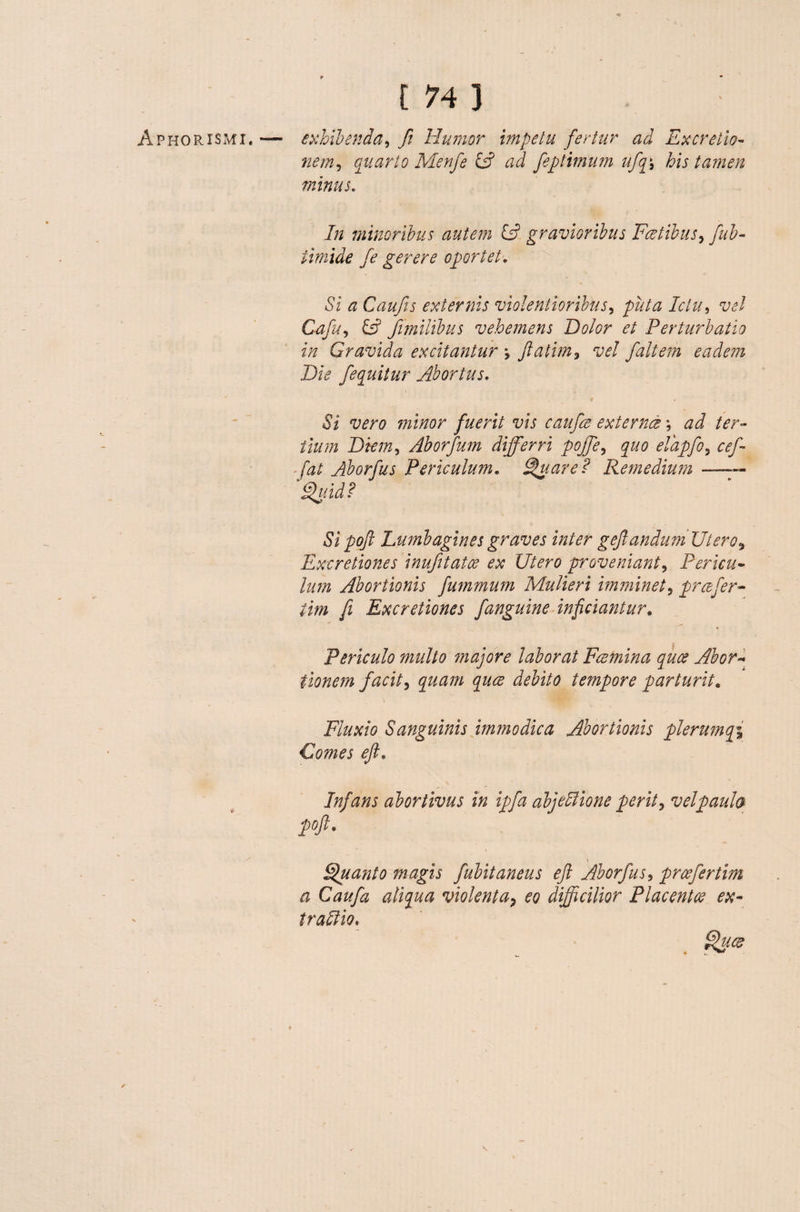 [ 74 ]
APHORISMI. — exhibenda, ſi Humor impetu fertur ad Excretio-
nem, quarto Menſe & ad ſeptimum uſq; his tamen
minus.
In minoribus autem & gravioribus Fœtibus, ſub-
timide ſe gerere oportet.
Si a Cauſis externis violentioribus, puta Ictu, vel
Caſu, & ſimilibus vehemens Dolor et Perturbatio
in Gravida excitantur; ſtatim, vel ſaltem eadem
Die ſequitur Abortus.
Si vero minor fuerit vis cauſæ externæ; ad ter-
tium Diem, Aborſum differri poſſe, quo elapſo, ceſ-
ſat Aborſus Periculum. Quare? Remedium ——
Quid?
Si poſt Lumbagines graves inter geſtandum Utero,
Excretiones inuſitatæ ex Utero proveniant, Pericu-
lum Abortionis ſummum Mulieri imminet, præſer-
tim ſi Excretiones ſanguine inficiantur.
Periculo multo majore laborat Fæmina quæ Abor-
tionem facit, quam quæ debito tempore parturit.
Fluxio Sanguinis immodica Abortionis plerumq;
Comes eſt.
Infans abortivus in ipſa abjectione perit, vel paulo
poſt.
Quanto magis ſubitaneus eſt Aborſus, præſertim
a Cauſa aliqua violenta, eo difficilior Placentæ ex-
tractio.
Quæ